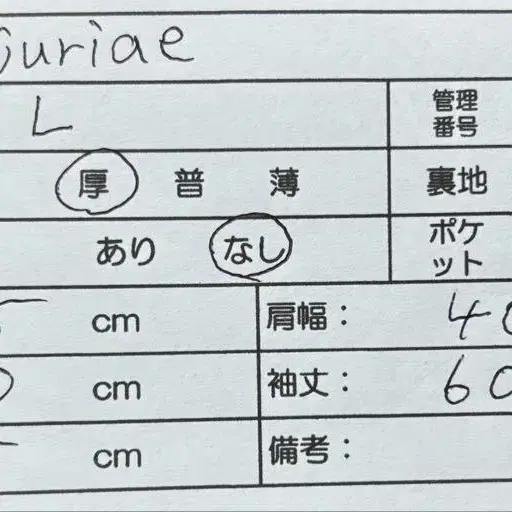 juriae
L 管理
番号
厚 普 薄 裏地
あり なし ポケ
ット
cm 肩幅： 40
cm 袖丈： 60
cm 備考：